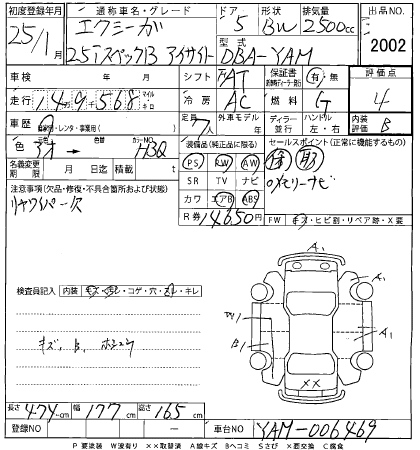 初度登録年月 通称車名・グレード ドア 形状 排気量 出品NO.
25年1月 エクシーガ 5 BW 2500cc 2002
25iスペックB アイサイト 型式 DBA-YAM
車検 年 月 シフト FAT 保証書 有 無 評価点
走行 149,568 マイル キロ 冷房 AC 燃料 G 4
車歴 自家用・レンタ・事業用( ) 定員 7人 外車モデル 年 ディーラー 並行 ハンドル 左・右 内装評価 B
色 色替 カラーNO. H3Q 装備品(純正品に限る) セールスポイント(正常に機能するもの)
名義変更期限 月 日迄 積載 t PS PW AW 取
注意事項(欠品・修復・不具合箇所および状態) SR TV ナビ メモリーナビ
リヤワイパー欠 カワ エアB ABS
R券 14650円 FW キズ・ヒビ割・リペア跡・X要
検査員記入 内装 キズ・汚レ・コゲ・穴・スレ・キレ
A1
A1
W1
A1
B1
キズ、B、
XX
A1
長さ 474cm 幅 177cm 高さ 165cm
登録NO - 車台NO YAM-006469
P 要塗装 W波有り ××取替済 A線キズ Bヘコミ Sさび ×要交換 C腐食